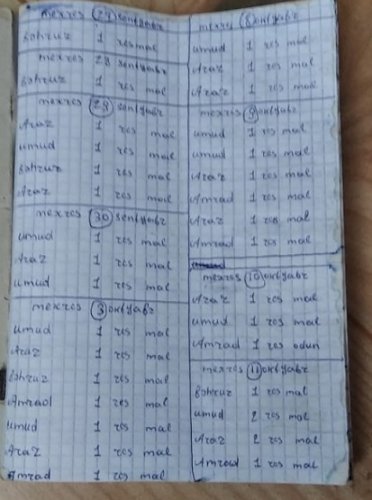 mexres 27 sentyabr
Bəhruz 1 res mal
mexres 28 sentyabr
Bəhruz 1 res mal
mexres 29 sentyabr
Araz 1 res mal
umud 1 res mal
Bəhruz 1 res mal
Araz 1 res mal
mexres 30 sentyabr
umud 1 res mal
Araz 1 res mal
umud 1 res mal
mexres 3 oktyabr
umud 1 res mal
Araz 1 res mal
Bəhruz 1 res mal
Amrad 1 res mal
umud 1 res mal
Araz 1 res mal
Amrad 1 res mal
mexres 8 oktyabr
umud 1 res mal
Araz 1 res mal
Araz 1 res mal
mexres 9 oktyabr
umud 1 res mal
umud 1 res mal
Araz 1 res mal
Amrad 1 res mal
Araz 1 res mal
Amrad 1 res mal
mexres 10 oktyabr
Araz 1 res mal
umud 1 res mal
Amrad 1 res odun
mexres 11 oktyabr
Bəhruz 1 res mal
umud 2 res mal
Araz 2 res mal
Amrad 1 res mal